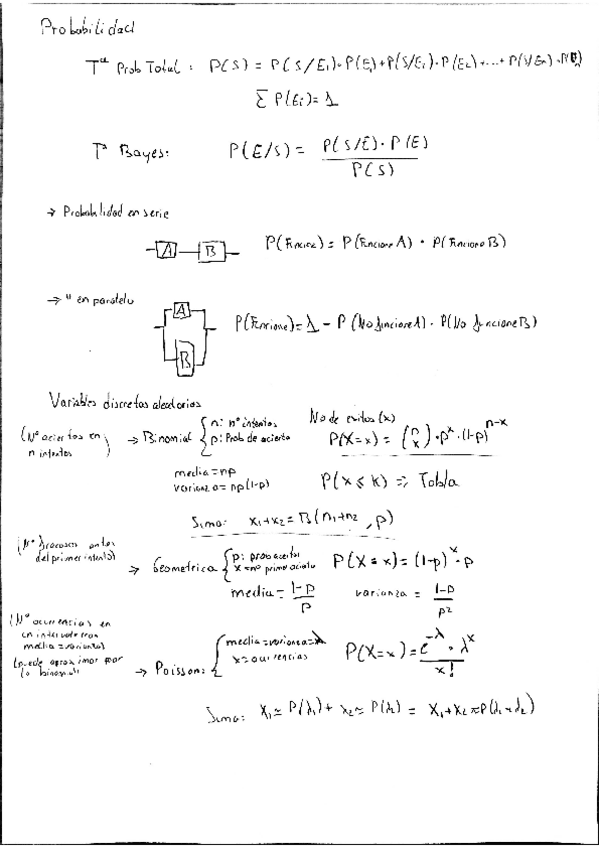 Probabilidad
Tª Prob Total: P(S) = P(S/E₁)·P(E₁)+P(S/E₂)·P(E₂)+...+P(S/Eₙ)·P(Eₙ)
∑ P(Ei) = 1
Tª Bayes: P(E/S) = P(S/E)·P(E) / P(S)
→ Probabilidad en serie
A B P(Funcione) = P(Funcione A) · P(Funcione B)
→ " en paralelo
A B P(Funcione) = 1 - P(No funcione A) · P(No funcione B)
Variables discretas aleatorias
(Nº aciertos en n intentos) → Binomial { n: nº intentos p: Prob de acierto
No de exitos (x)
P(X=x) = (n x) · pˣ · (1-p)ⁿ⁻ˣ
media = np
varianza = np(1-p)
P(X ≤ K) => Tabla
Suma: x₁+x₂ = B(n₁+n₂, p)
(Nº fracasos antes del primer intento) → Geometrica { p: prob acierto x = nº primer acierto P(X=x) = (1-p)ˣ · p
media = 1-p / p varianza = 1-p / p²
(Nº ocurrencias en un intervalo con media = varianza)
(puede aproximar por la binomial) → Poisson: { media = varianza = λ x = ocurrencias P(X=x) = e^-λ · λˣ / x!
Suma: X₁ ≈ P(λ₁) + X₂ ≈ P(λ₂) = X₁+X₂ ≈ P(λ₁+λ₂)